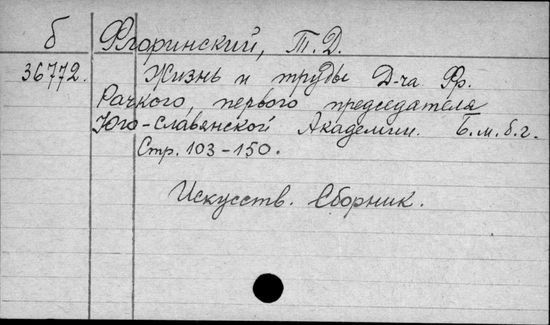 б Флоринский, Т.Д.
36772. Жизнь и труды Д-ча Фр.
Рачкого, первого председателя
Юго-Славянской Академии. Б.м.б.г.
Стр. 103-150.
Искусств. Сборник.